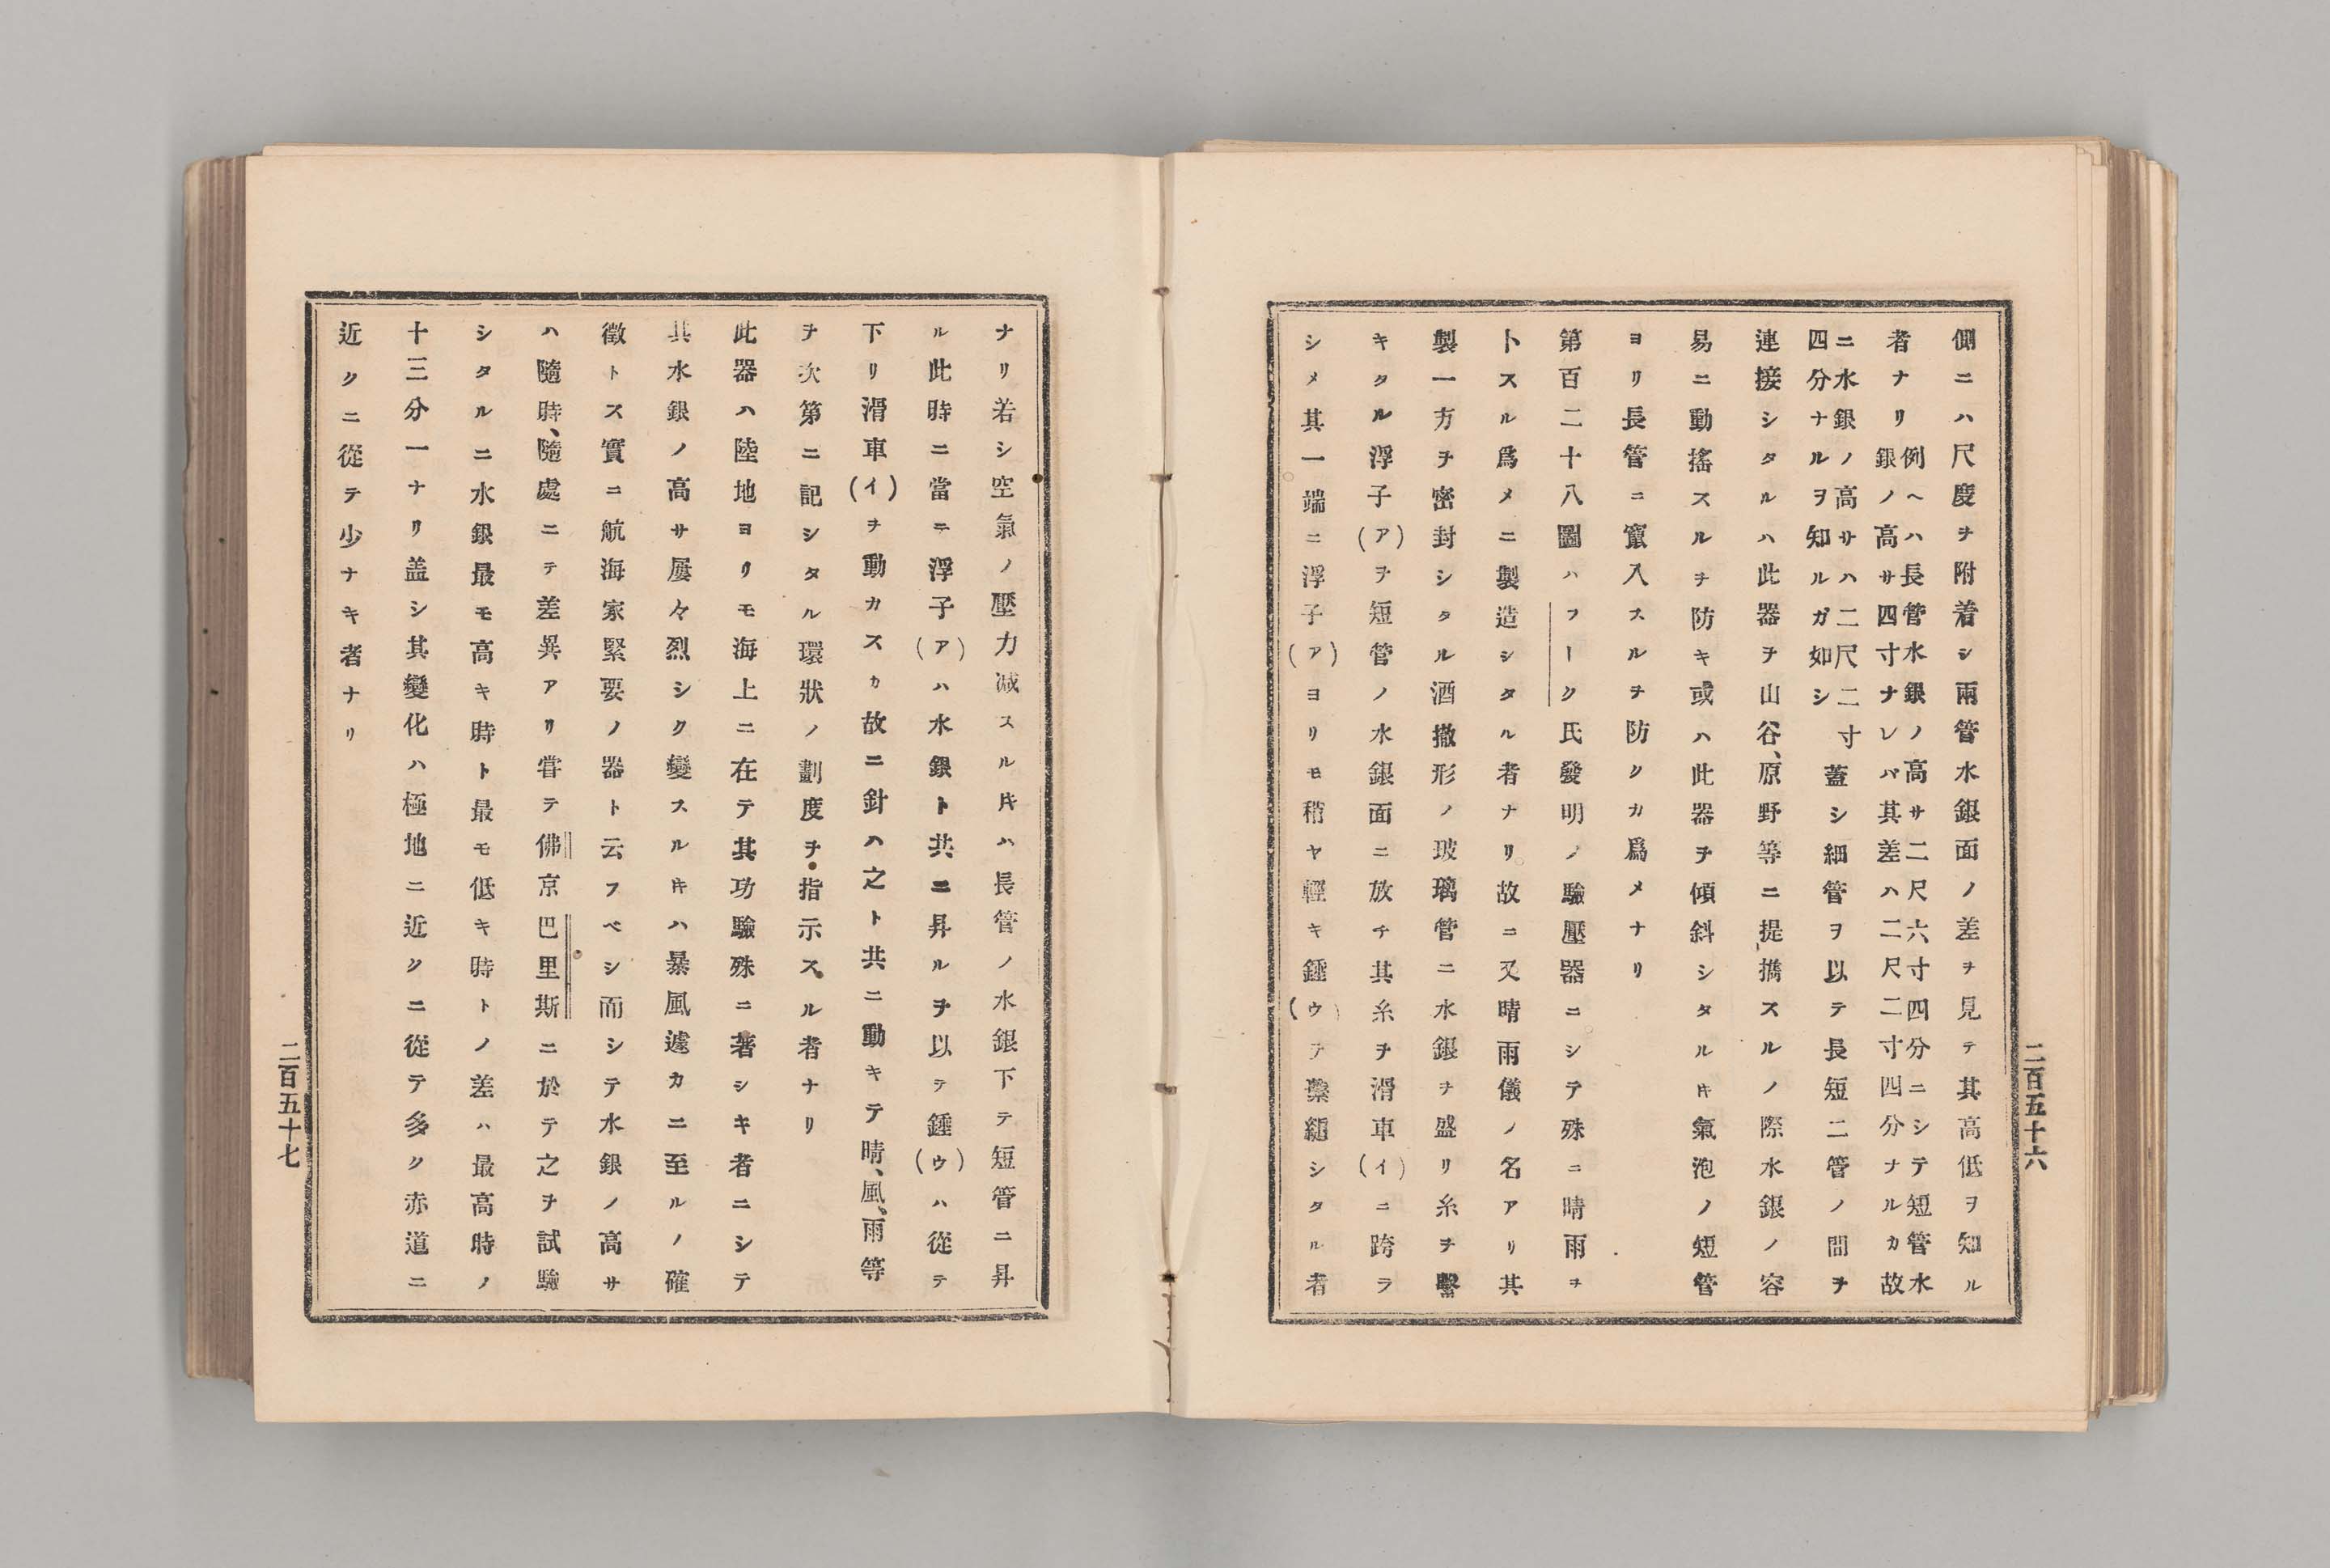 側ニハ尺度ヲ附着シ兩管水銀面ノ差ヲ見テ其高低ヲ知ル
者ナリ
例ヘハ長管水銀ノ高サ二尺六寸四分ニシテ短管水
銀ノ高サ四寸ナレバ其差ハ二尺二寸四分ナルカ故
ニ水銀ノ高サハ二尺二寸
四分ナルヲ知ルガ如シ
蓋シ細管ヲ以テ長短二管ノ間ヲ
連接シタルハ此器ヲ山谷、原野等ニ提擕スルノ際水銀ノ容
易ニ動搖スルヲ防キ或ハ此器ヲ傾斜シタルトキ氣泡ノ短管
ヨリ長管ニ竄入スルヲ防クカ爲メナリ
第百二十八圖ハフーク氏發明ノ驗壓器ニシテ殊ニ晴雨ヲ
卜スル爲メニ製造シタル者ナリ故ニ又晴雨儀ノ名アリ其
製一方ヲ密封シタル酒撤形ノ玻璃管ニ水銀ヲ盛リ糸ヲ繫
キタル浮子(ア)ヲ短管ノ水銀面ニ放チ其糸ヲ滑車(イ)ニ跨ラ
シメ其一端ニ浮子(ア)ヨリモ稍ヤ輕キ錘(ウ)ヲ繫縋シタル者
二百五十六
ナリ若シ空氣ノ壓力減スルトキハ長管ノ水銀下テ短管ニ昇
ル此時ニ當テ浮子(ア)ハ水銀ト共ニ昇ルヲ以テ錘(ウ)ハ從テ
下リ滑車(イ)ヲ動カスカ故ニ針ハ之ト共ニ動キテ晴、風、雨等
ヲ次第ニ記シタル環狀ノ劃度ヲ指示スル者ナリ
此器ハ陸地ヨリモ海上ニ在テ其功驗殊ニ著シキ者ニシテ
其水銀ノ高サ屢々烈シク變スルトキハ暴風遽カニ至ルノ確
徵トス實ニ航海家緊要ノ器ト云フベシ而シテ水銀ノ高サ
ハ隨時、隨處ニテ差異アリ甞テ佛京巴里斯ニ於テ之ヲ試驗
シタルニ水銀最モ高キ時ト最モ低キ時トノ差ハ最高時ノ
十三分一ナリ盖シ其變化ハ極地ニ近クニ從テ多ク赤道ニ
近クニ從テ少ナキ者ナリ
二百五十七